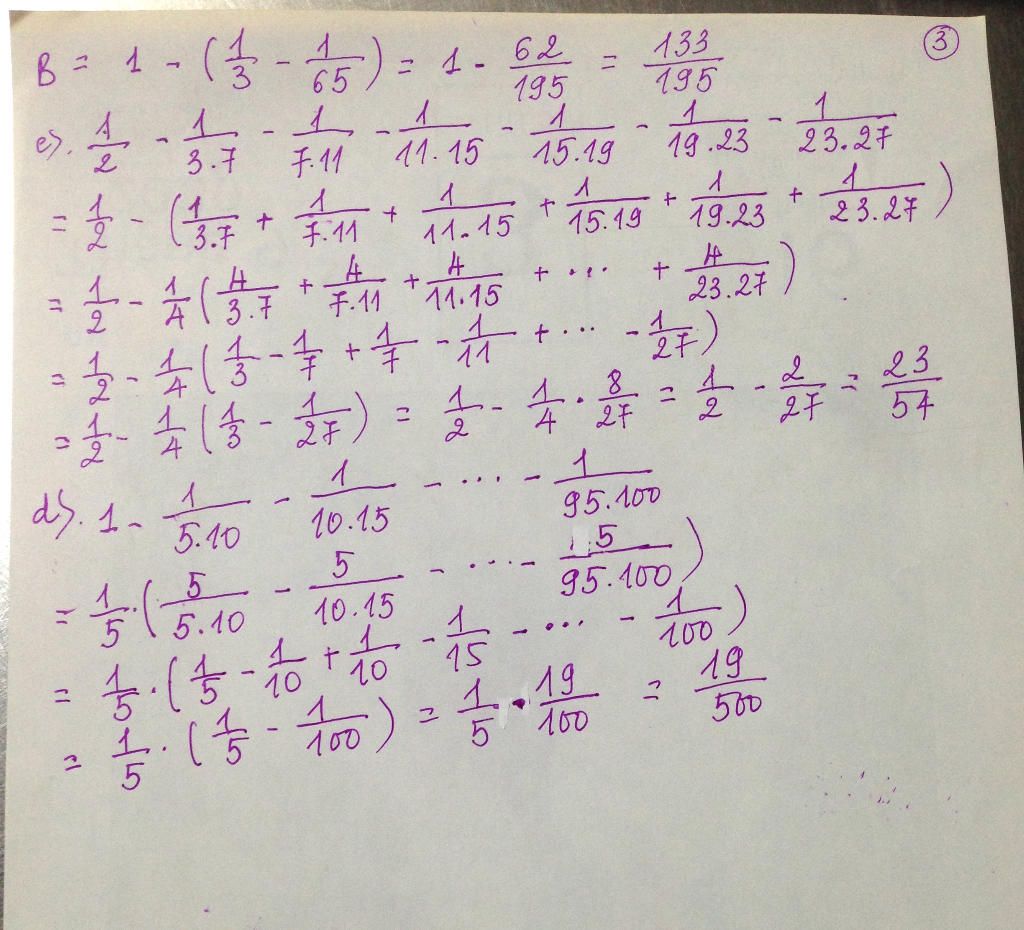 ③
B = 1 - (1/3 - 1/65) = 1 - 62/195 = 133/195
c). 1/2 - 1/3.7 - 1/7.11 - 1/11.15 - 1/15.19 - 1/19.23 - 1/23.27
= 1/2 - (1/3.7 + 1/7.11 + 1/11.15 + 1/15.19 + 1/19.23 + 1/23.27)
= 1/2 - 1/4 (4/3.7 + 4/7.11 + 4/11.15 + ... + 4/23.27)
= 1/2 - 1/4 (1/3 - 1/7 + 1/7 - 1/11 + ... - 1/27)
= 1/2 - 1/4 (1/3 - 1/27) = 1/2 - 1/4 . 8/27 = 1/2 - 2/27 = 23/54
d). 1 - 1/5.10 - 1/10.15 - ... - 1/95.100
= 1/5 . (5/5.10 - 5/10.15 - ... - 5/95.100)
= 1/5 . (1/5 - 1/10 + 1/10 - 1/15 - ... - 1/100)
= 1/5 . (1/5 - 1/100) = 1/5 . 19/100 = 19/500